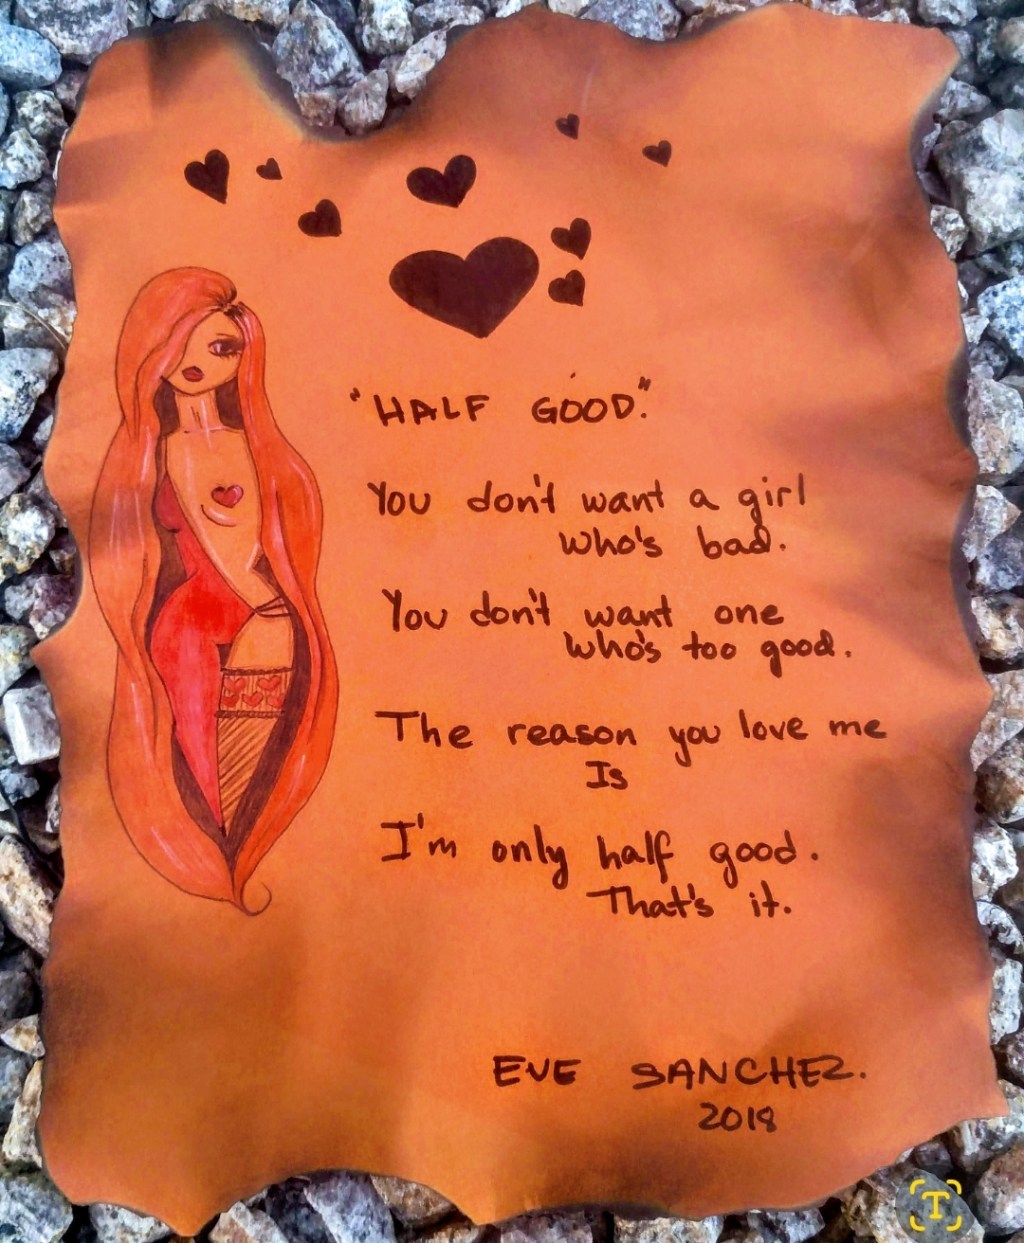 "HALF GOOD."
You don't want a girl
who's bad.
You don't want one
who's too good.
The reason you love me
Is
I'm only half good.
That's it.
EVE SANCHEZ.
2018
T